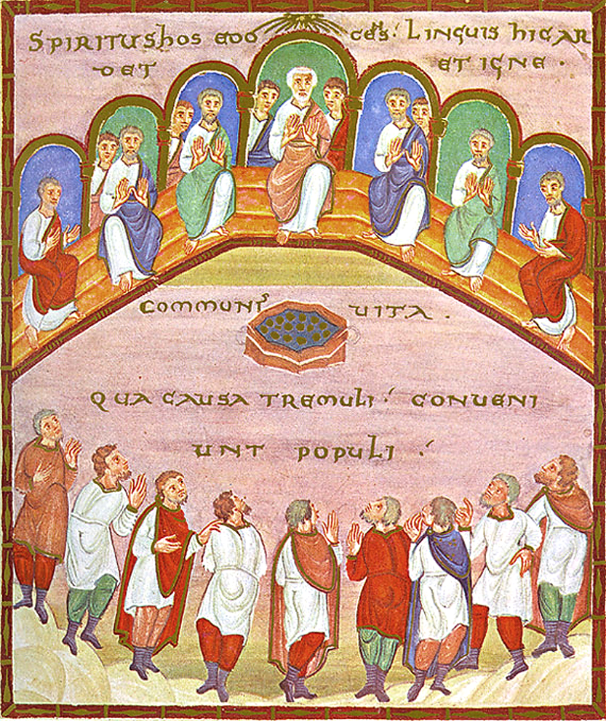 SPIRITUS hOS EDO · LINGUIS hIC AR
DET ET IGNE ·
COMMUNIS UITA ·
QUA CAUSA TREMULI CONUENI
UNT POPULI